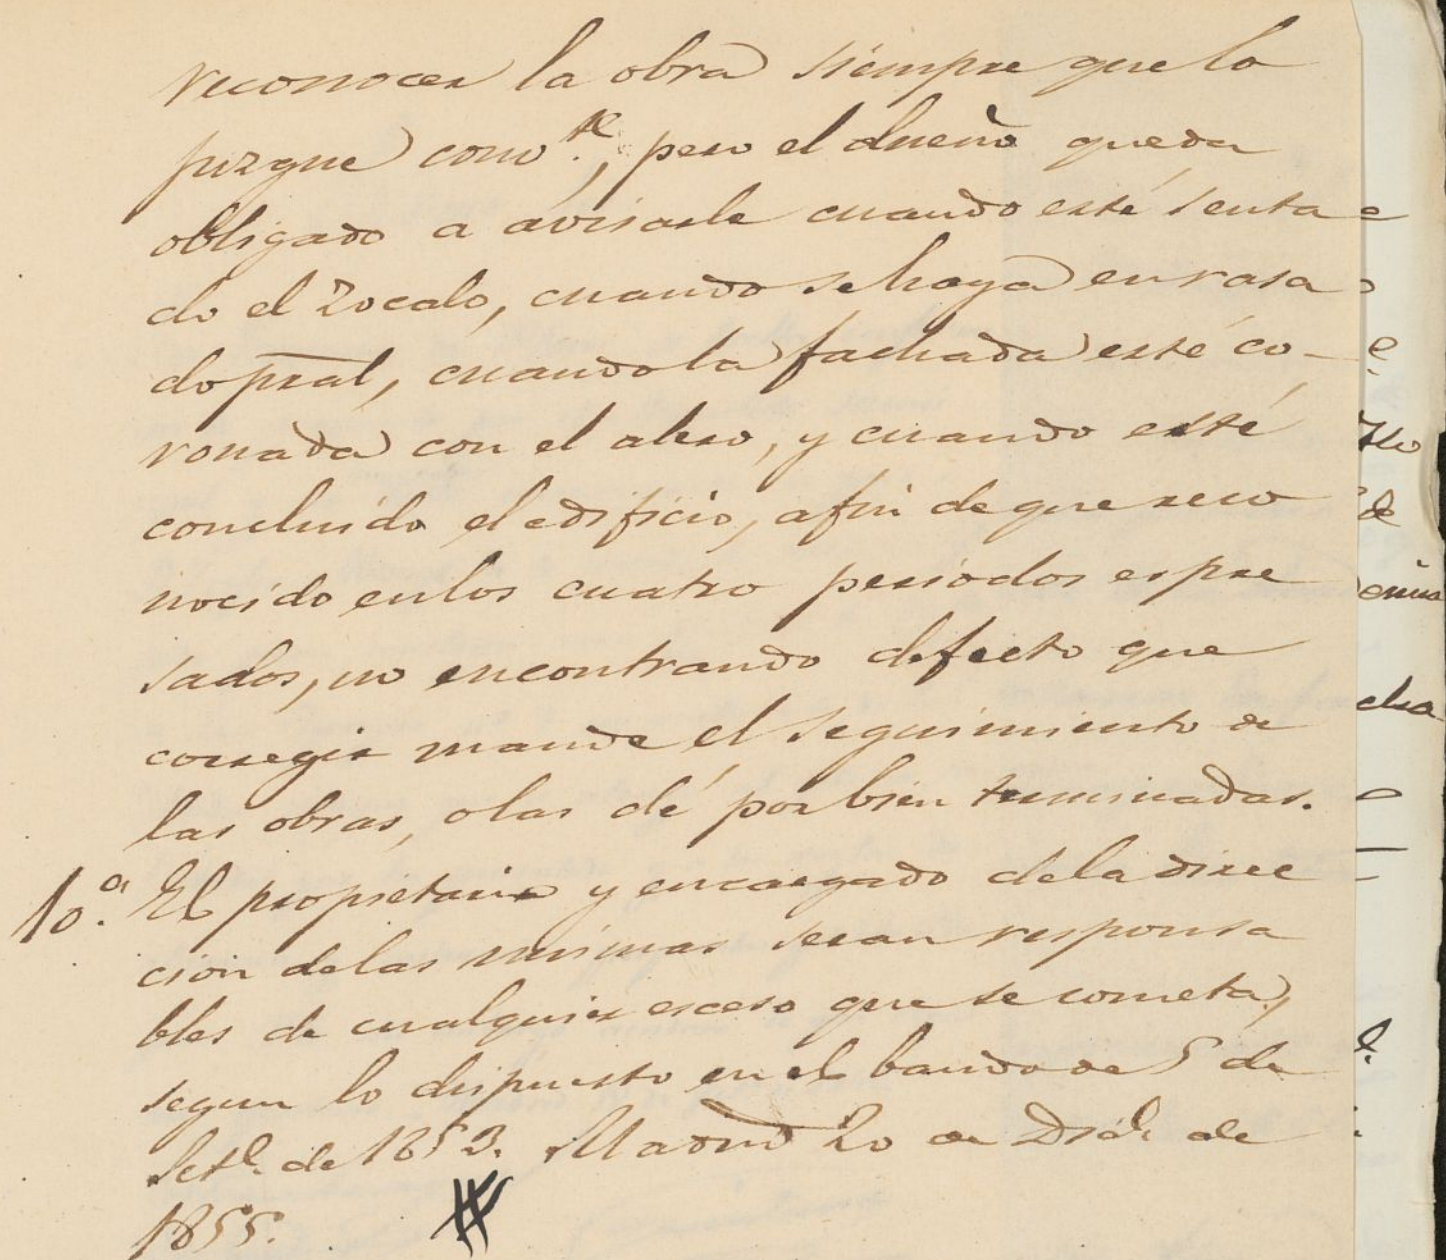 reconocer la obra siempre que lo
juzgue conv.te, pero el dueño queda
obligado a avisarle cuando esté senta
do el zocalo, cuando se haya enrasa
do pral, cuando la fachada esté co-
ronada con el alero, y cuando esté
concluido el edificio, a fin de que reco
nocido en los cuatro periodos espre
sados, no encontrando defecto que
corregir mande el seguimiento de
las obras, o las dé por bien terminadas.
10.a El propietario y encargado de la direc
cion de las mismas seran responsa
bles de cualquier esceso que se cometa,
segun lo dispuesto en el bando de 5 de
Set.e de 1853. Madrid 20 de Dic.e de
1855.